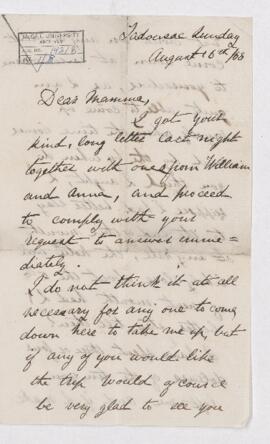 McGILL UNIVERSITY
ACC. NO. 1421/B
REF. 11B
Tadousac Sunday
August 16th/68
Dear Mamma,
I got your
kind, long letter last night
together with one from William
and Anna, and proceed
to comply with your
request to answer imme=
diately.
I do not think it at all
necessary for any one to come
down here to take me up, but
if any of you would like
the trip would of course
be very glad to see you